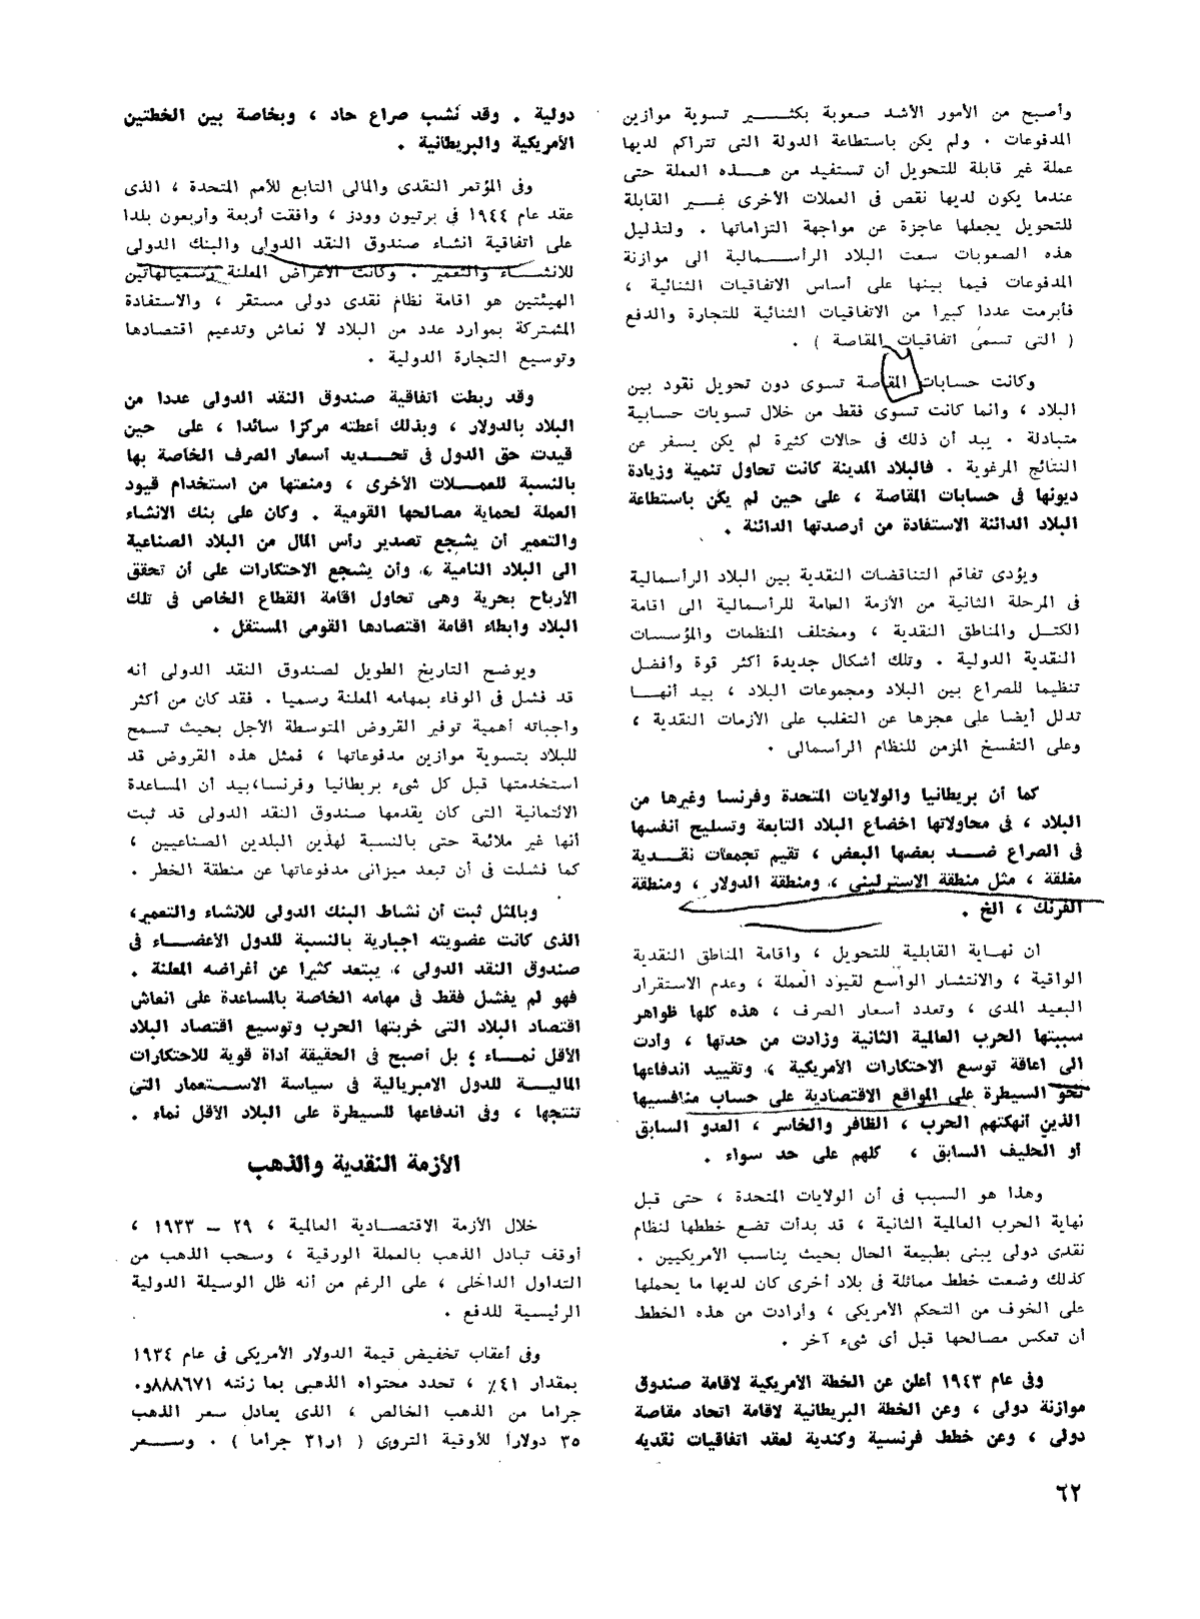 وأصبح من الأمور الأشد صعوبة بكثير تسوية موازين
المدفوعات . ولم يكن باستطاعة الدولة التى تتراكم لديها
عملة غير قابلة للتحويل أن تستفيد من هذه العملة حتى
عندما يكون لديها نقص فى العملات الأخرى غير القابلة
للتحويل يجعلها عاجزة عن مواجهة التزاماتها . ولتذليل
هذه الصعوبات سعت البلاد الرأسمالية الى موازنة
المدفوعات فيما بينها على أساس الاتفاقيات الثنائية ،
فأبرمت عددا كبيرا من الاتفاقيات الثنائية للتجارة والدفع
( التى تسمى اتفاقيات المقاصة ) .
وكانت حسابات المقاصة تسوى دون تحويل نقود بين
البلاد ، وانما كانت تسوى فقط من خلال تسويات حسابية
متبادلة . بيد أن ذلك فى حالات كثيرة لم يكن يسفر عن
النتائج المرغوبة . فالبلاد المدينة كانت تحاول تنمية وزيادة
ديونها فى حسابات المقاصة ، على حين لم يكن باستطاعة
البلاد الدائنة الاستفادة من أرصدتها الدائنة .
ويؤدى تفاقم التناقضات النقدية بين البلاد الرأسمالية
فى المرحلة الثانية من الأزمة العامة للرأسمالية الى اقامة
الكتل والمناطق النقدية ، ومختلف المنظمات والمؤسسات
النقدية الدولية . وتلك أشكال جديدة أكثر قوة وأفضل
تنظيما للصراع بين البلاد ومجموعات البلاد ، بيد أنها
تدلل أيضا على عجزها عن التغلب على الأزمات النقدية ،
وعلى التفسخ المزمن للنظام الرأسمالى .
كما أن بريطانيا والولايات المتحدة وفرنسا وغيرها من
البلاد ، فى محاولاتها اخضاع البلاد التابعة وتسليح أنفسها
فى الصراع ضد بعضها البعض ، تقيم تجمعات نقدية
مغلقة ، مثل منطقة الاسترلينى ، ومنطقة الدولار ، ومنطقة
الفرنك ، الخ .
ان نهاية القابلية للتحويل ، واقامة المناطق النقدية
الواقية ، والانتشار الواسع لقيود العملة ، وعدم الاستقرار
البعيد المدى ، وتعدد أسعار الصرف ، هذه كلها ظواهر
سببتها الحرب العالمية الثانية وزادت من حدتها ، وأدت
الى اعاقة توسع الاحتكارات الأمريكية ، وتقييد اندفاعها
نحو السيطرة على المواقع الاقتصادية على حساب منافسيها
الذين أنهكتهم الحرب ، الظافر والخاسر ، العدو السابق
أو الحليف السابق ، كلهم على حد سواء .
وهذا هو السبب فى أن الولايات المتحدة ، حتى قبل
نهاية الحرب العالمية الثانية ، قد بدأت تضع خططها لنظام
نقدى دولى يبنى بطبيعة الحال بحيث يناسب الأمريكيين .
كذلك وضعت خطط مماثلة فى بلاد أخرى كان لديها ما يحملها
على الخوف من التحكم الأمريكى ، وأرادت من هذه الخطط
أن تعكس مصالحها قبل أى شىء آخر .
وفى عام ١٩٤٣ أعلن عن الخطة الأمريكية لاقامة صندوق
موازنة دولى ، وعن الخطة البريطانية لاقامة اتحاد مقاصة
دولى ، وعن خطط فرنسية وكندية لعقد اتفاقيات نقدية
دولية . وقد نشب صراع حاد ، وبخاصة بين الخطتين
الأمريكية والبريطانية .
وفى المؤتمر النقدى والمالى التابع للأمم المتحدة ، الذى
عقد عام ١٩٤٤ فى برتيون وودز ، وافقت أربعة وأربعون بلدا
على اتفاقية انشاء صندوق النقد الدولى والبنك الدولى
للانشاء والتعمير . وكانت الأغراض المعلنة رسميالهاتين
الهيئتين هو اقامة نظام نقدى دولى مستقر ، والاستفادة
المشتركة بموارد عدد من البلاد لا نعاش وتدعيم اقتصادها
وتوسيع التجارة الدولية .
وقد ربطت اتفاقية صندوق النقد الدولى عددا من
البلاد بالدولار ، وبذلك أعطته مركزا سائدا ، على حين
قيدت حق الدول فى تحديد أسعار الصرف الخاصة بها
بالنسبة للعملات الأخرى ، ومنعتها من استخدام قيود
العملة لحماية مصالحها القومية . وكان على بنك الانشاء
والتعمير أن يشجع تصدير رأس المال من البلاد الصناعية
الى البلاد النامية ، وأن يشجع الاحتكارات على أن تحقق
الأرباح بحرية وهى تحاول اقامة القطاع الخاص فى تلك
البلاد وابطاء اقامة اقتصادها القومى المستقل .
ويوضح التاريخ الطويل لصندوق النقد الدولى أنه
قد فشل فى الوفاء بمهامه المعلنة رسميا . فقد كان من أكثر
واجباته أهمية توفير القروض المتوسطة الأجل بحيث تسمح
للبلاد بتسوية موازين مدفوعاتها ، فمثل هذه القروض قد
استخدمتها قبل كل شىء بريطانيا وفرنسا،بيد أن المساعدة
الائتمانية التى كان يقدمها صندوق النقد الدولى قد ثبت
أنها غير ملائمة حتى بالنسبة لهذين البلدين الصناعيين ،
كما فشلت فى أن تبعد ميزانى مدفوعاتها عن منطقة الخطر .
وبالمثل ثبت أن نشاط البنك الدولى للانشاء والتعمير،
الذى كانت عضويته اجبارية بالنسبة للدول الأعضاء فى
صندوق النقد الدولى ، يبتعد كثيرا عن أغراضه المعلنة .
فهو لم يفشل فقط فى مهامه الخاصة بالمساعدة على انعاش
اقتصاد البلاد التى خربتها الحرب وتوسيع اقتصاد البلاد
الأقل نماء ؛ بل أصبح فى الحقيقة أداة قوية للاحتكارات
المالية للدول الامبريالية فى سياسة الاستعمار التى
تنتجها ، وفى اندفاعها للسيطرة على البلاد الأقل نماء .
الأزمة النقدية والذهب
خلال الأزمة الاقتصادية العالمية ، ٢٩ – ١٩٣٣ ،
أوقف تبادل الذهب بالعملة الورقية ، وسحب الذهب من
التداول الداخلى ، على الرغم من أنه ظل الوسيلة الدولية
الرئيسية للدفع .
وفى أعقاب تخفيض قيمة الدولار الأمريكى فى عام ١٩٣٤
بمقدار ٤١٪ ، تحدد محتواه الذهبى بما زنته ٨٨٨٦٧١و٠
جراما من الذهب الخالص ، الذى يعادل سعر الذهب
٣٥ دولارا للأوقية التروى ( ١ر٣١ جراما ) . وسعر
٦٢